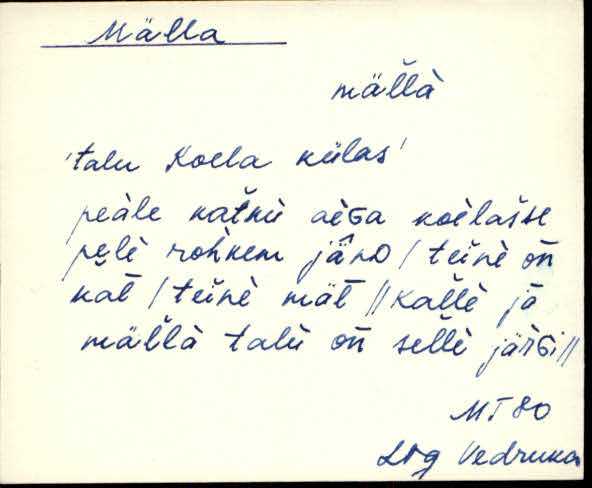 Mälla
mällà
'talu Koela külas'
peàle katkù aèGa koèlašse
pelè rohkem jänD / teinè on
kät / teinè mät // kallè jà
mällà talù on sellè järGi //
MT 80
LNg Vedruka